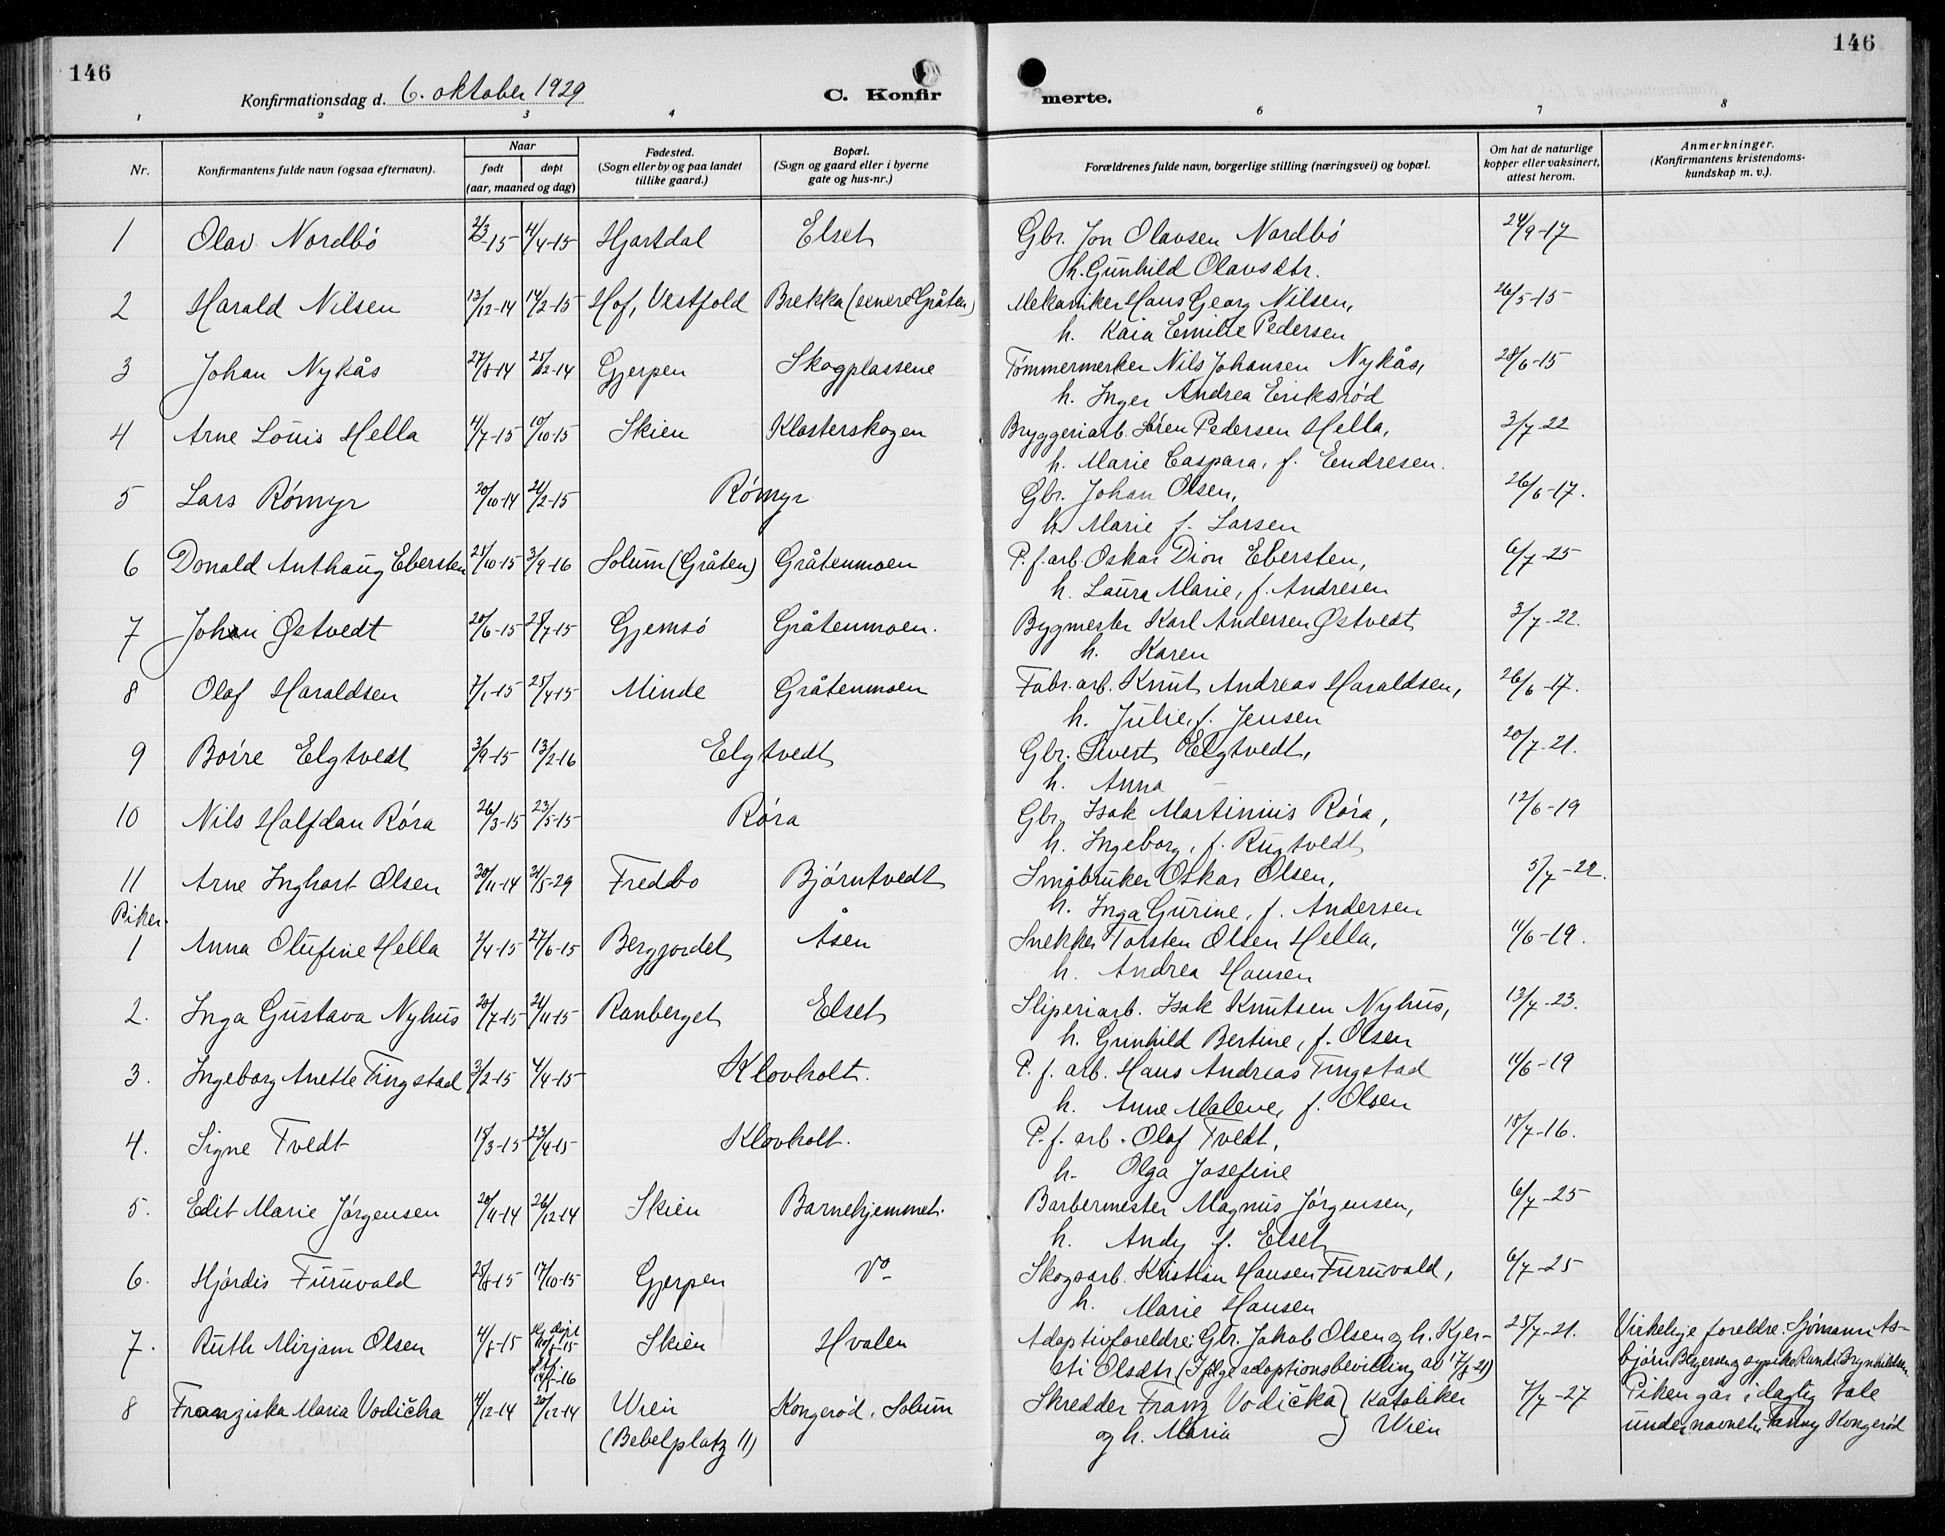 146
146
Konfirmationsdag d. 6. oktober 1929
C. Konfir
merte.
1 2 3 4 6 7 8
Nr.
Konfirmantens fulde navn (ogsaa efternavn).
Naar
født døpt
(aar, maaned og dag)
Fødested.
(Sogn eller by og paa landet
tillike gaard.)
Bopæl.
(Sogn og gaard eller i byerne
gate og hus-nr.)
Forældrenes fulde navn, borgerlige stilling (næringsvei) og bopæl.
Om hat de naturlige
kopper eller vaksinert,
attest herom.
Anmerkninger.
(Konfirmantens kristendoms-
kundskap m. v.).
1 Olav Nordbø 2/3-15 11/4-15 Hjartdal Elset Gbr. Jon Olavsen Nordbö 24/9-17
h. Gunhild Olavsdtr.
2 Harald Nilsen 13/12-14 14/2-15 Hof, Vestfold Brekka (Gråten) Mekaniker Hans Georg Nilsen, 26/5-15
h. Kaia Emilie Pedersen
3 Johan Nykås 27/8-14 25/12-14 Gjerpen Skogplassene Tømmermerker Nils Johansen Nykås, 28/6-15
h. Inger Andrea Eriksrød
4 Arne Louis Hella 4/7-15 10/10-15 Skien Klosterskogen Bryggeriarb. Søren Pedersen Hella, 3/7-22
h. Marie Caspara, f. Endresen.
5 Lars Römyr 20/10-14 21/2-15 Römyr Gbr. Johan Olsen, 26/6-17.
h. Marie f. Larsen
6 Donald Anthaug Ebersten 25/10-15 3/9-16 Solum (Gråten) Gråtenmoen P. f. arb. Oskar Dion Ebersten, 6/7-25
h. Laura Marie, f. Andresen
7 Johan Østvedt 20/6-15 25/7-15 Gjemsö Gråtenmoen. Bygmester Karl Andersen Østvedt 3/7-22.
h. Karen
8 Olaf Haraldsen 7/1-15 25/4-15 Minde Gråtenmoen Fabr. arb. Knut Andreas Haraldsen, 26/6-17.
h. Julie, f. Jensen
9 Börre Elgtvedt 3/9-15 13/2-16 Elgtvedt Gbr. Sivert Elgtvedt, 20/7-21.
h. Anna
10 Nils Halfdan Röra 26/3-15 23/5-15 Röra Gbr. Isak Martinius Röra, 12/6-19
h. Ingeborg, f. Rugtvedt
11 Arne Inghart Olsen 30/11-14 21/5-29 Fredbo Bjørntvedt Småbruker Oskar Olsen, 5/7-22.
h. Inga Gurine, f. Andersen
Piker.
1 Anna Olufine Hella 2/4-15 27/6-15 Berggordet Åsen Snekker Torsten Olsen Hella, 11/6-19.
h. Andrea Hansen
2. Inga Gustava Nyhus 20/7-15 21/11-15 Ranberget Elset Sliperiarb. Isak Knutsen Nyhus, 13/7-23.
h. Gunhild Bertine, f. Olsen
3. Ingeborg Anette Tingstad 3/2-15 4/4-15 Klovholt. P. f. arb. Hans Andreas Tingstad 11/6-19
h. Anne Malene, f. Olsen
4. Signe Tvedt 15/3-15 23/4-15 Klovholt. P. f. arb. Olaf Tvedt, 18/7-16.
h. Olga Josefine
5. Edit Marie Jörgensen 20/11-14 26/12-14 Skien Barnehjemmet. Barbermester Magnus Jörgensen, 6/7-25
h. Andy f. Elset
6. Hjördis Furuvald 25/8-15 17/10-15 Gjerpen Skogsarb. Kristian Hansen Furuvald, 6/7-25
h. Marie Hansen
7. Ruth Mirjam Olsen 4/8-15 Skien Hvalen Adoptivforeldre: Gbr. Jakob Olsen og h. Kjer- 25/7-21. Virkelige foreldre: Sjømann As-
sti Olsdtr (Ifølge adoptionsbevilling av 17/8-21) bjørn Brynhildsen
8 Franziska Maria Vodička 4/12-14 20/12-14 Wien Kongerød, Solum Skredder Franz Vodička Katoliker 7/7-27 Piken går i daglig tale
(Bebelplatz 11) og h. Maria Wien under navnet Fanny Kongerød